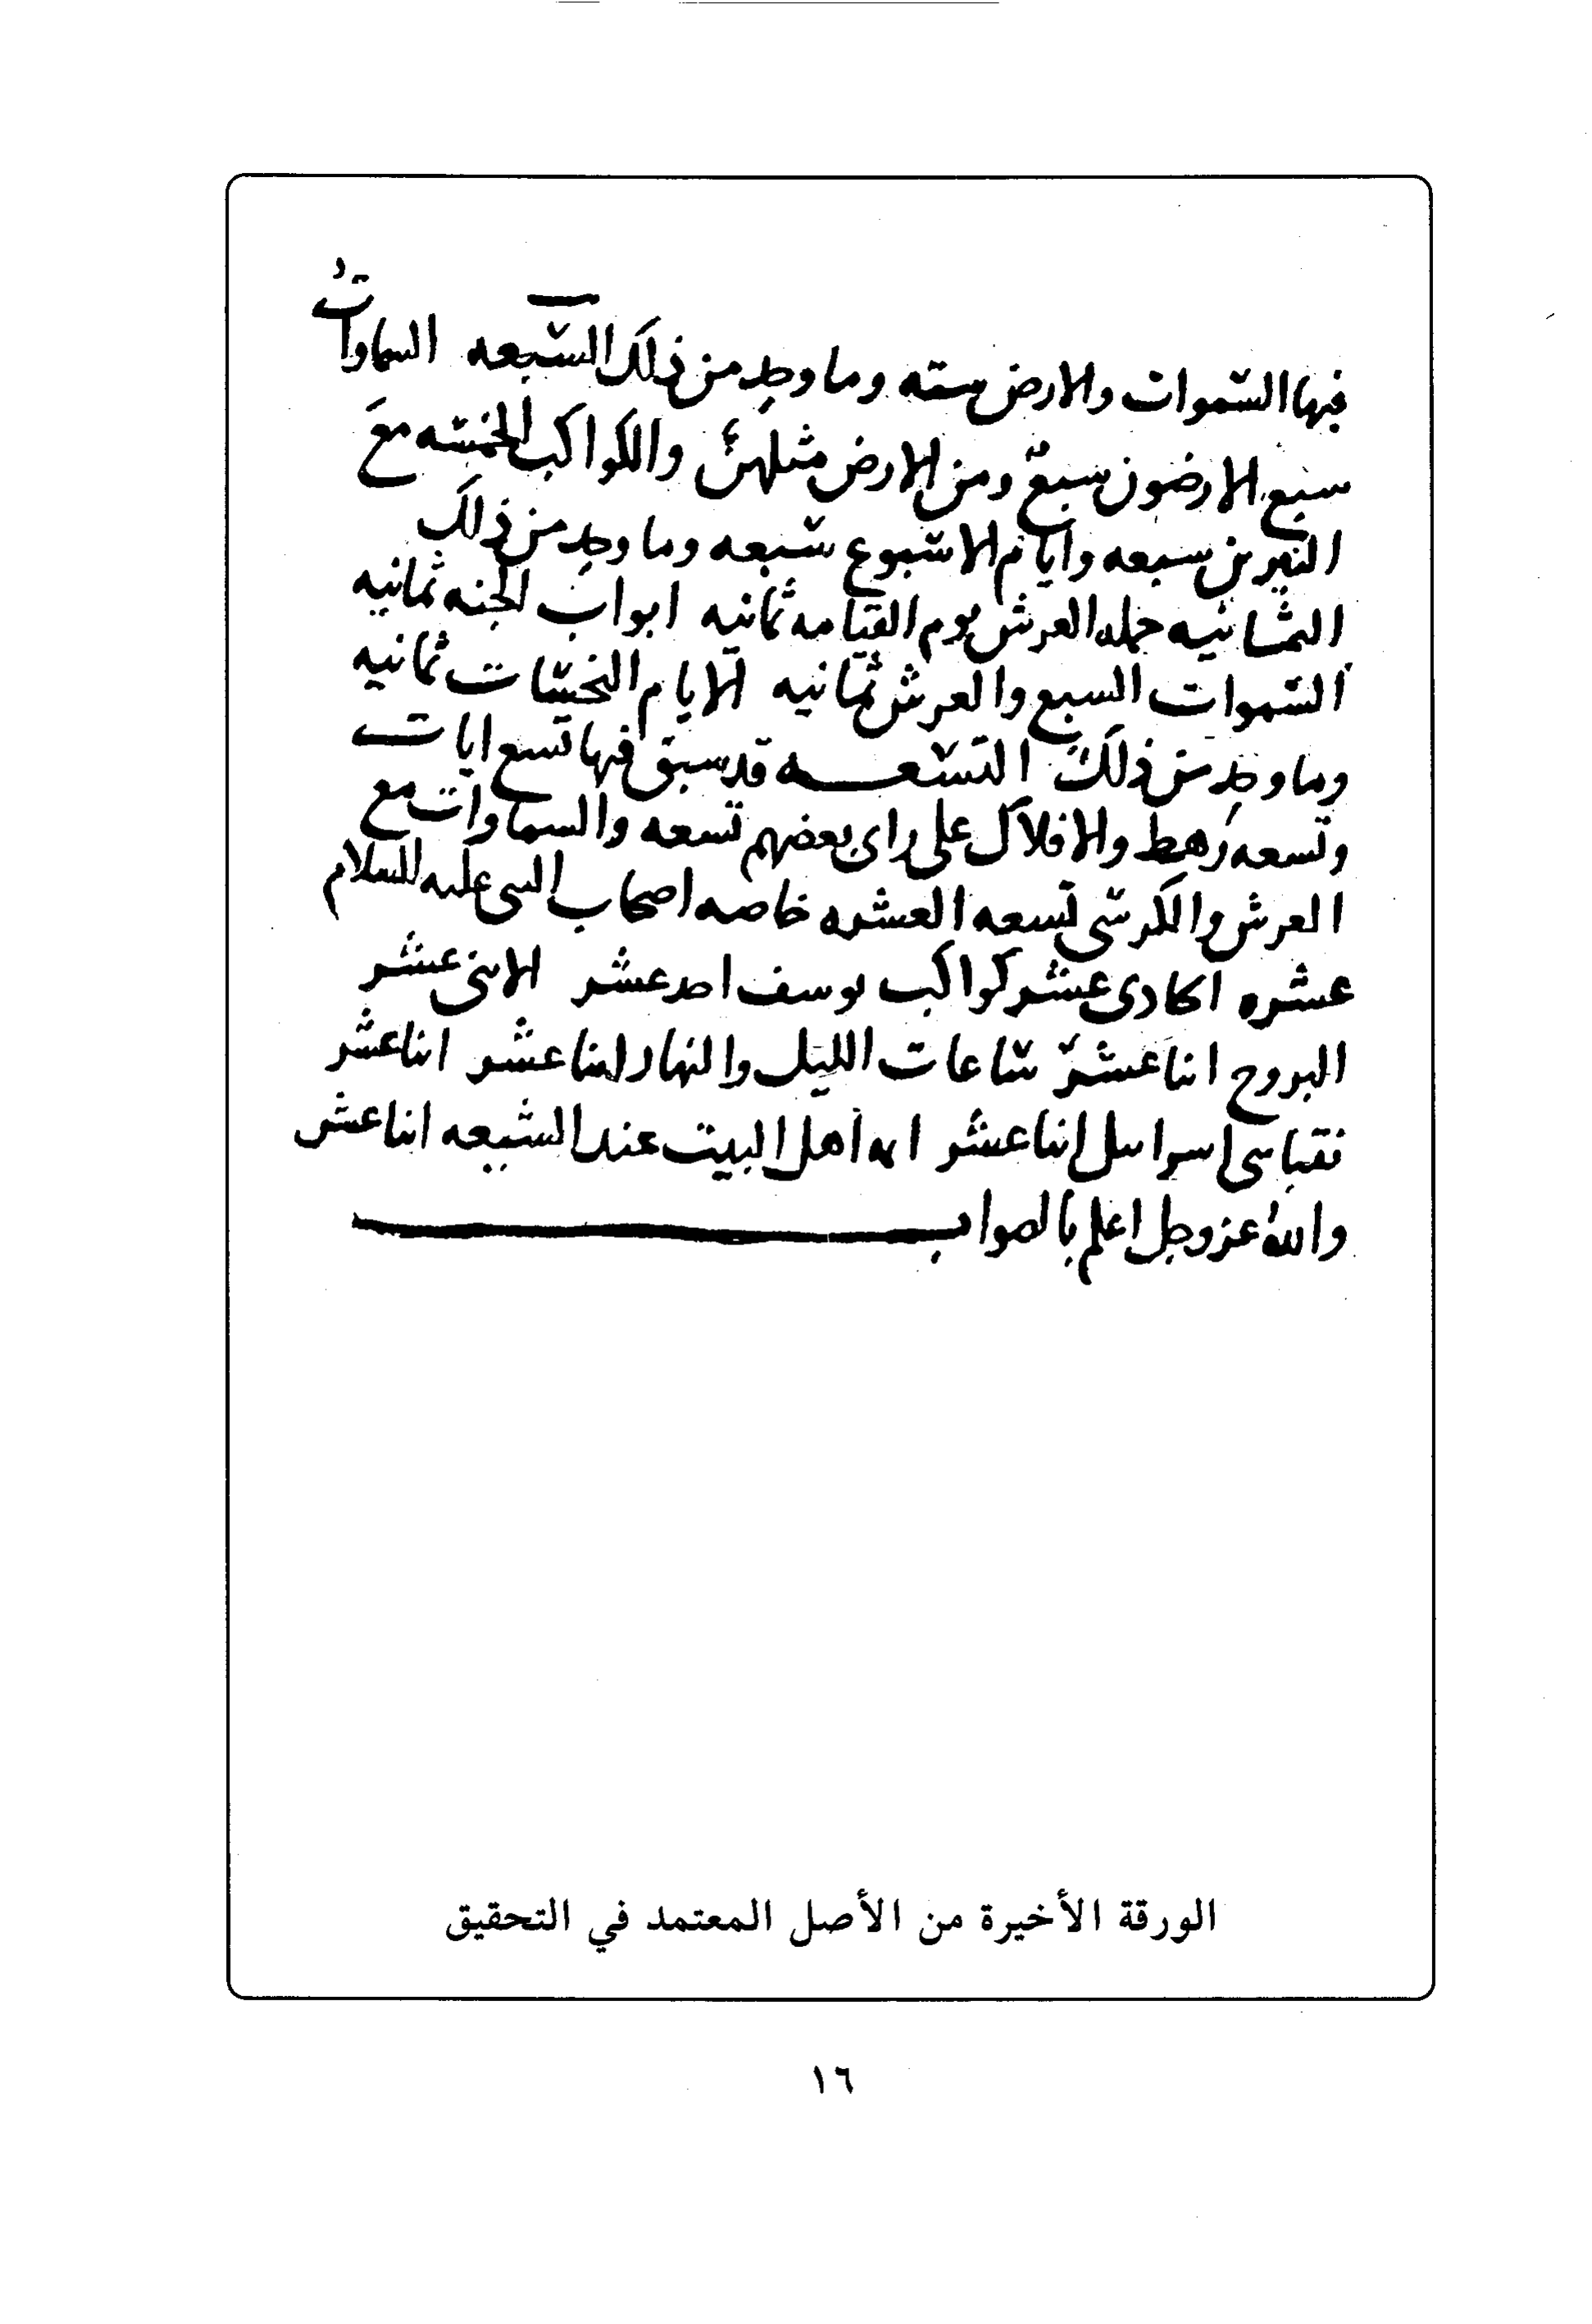 فيها السموات والارض سته وما وجد من ذلك السبعه السماوات
سبع الارضون سبع ومن الارض مثلهن والكواكب الخمسه مع
النيرين سبعه وايام الاسبوع سبعه وما وجد من ذلك
الثمانيه حمله العرش يوم القيامه ثمانيه ابواب الجنه ثمانيه
السموات السبع والعرش ثمانيه الايام النحسات ثمانيه
وما وجد من ذلك التسعه قد سبق فيها تسع ايات
وتسعه رهط والافلاك على راى بعضهم تسعه والسماوات مع
العرش والكرسى تسعه العشره خاصه اصحاب النبى عليه السلام
عشره الحادى عشر كواكب يوسف احد عشر الاثنى عشر
البروج اثنا عشر ساعات الليل والنهار اثنا عشر اثنا عشر
نقبا بنى اسرائيل اثنا عشر ايمه اهل البيت عند الشيعه اثنا عشر
والله عز وجل اعلم بالصواب
الورقة الأخيرة من الأصل المعتمد في التحقيق
١٦